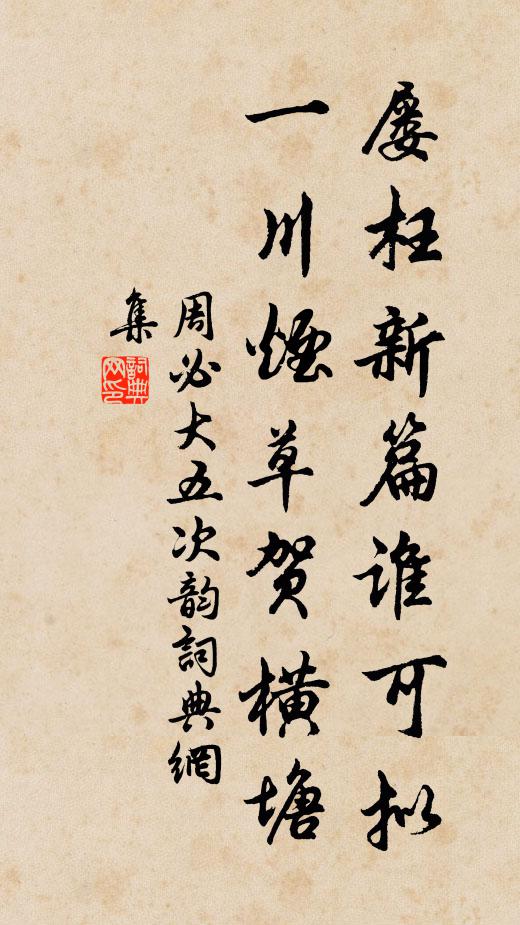 屡枉新篇谁可拟
一川烟草贺横塘
周必大五次韵詞典網
集
詞典網印